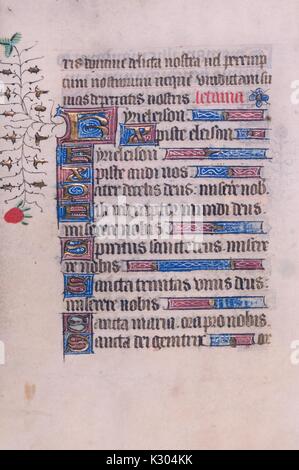 ris domine delicta nostra uel paren
tum nostrorum neque uindictam su
mas de peccatis nostris. Letania
Kyrieleison
Xpiste eleison
Kyrieleison
Xpiste audi nos
Pater de celis deus. miserere nob.
Fili redemptor mundi deus.
miserere nobis
Spiritus sancte deus. misere
re nobis
Sancta trinitas unus deus.
miserere nobis
Sancta maria. ora pro nobis.
Sancta dei genitrix or
alamy
alamy stock photo
K304KK
www.alamy.com